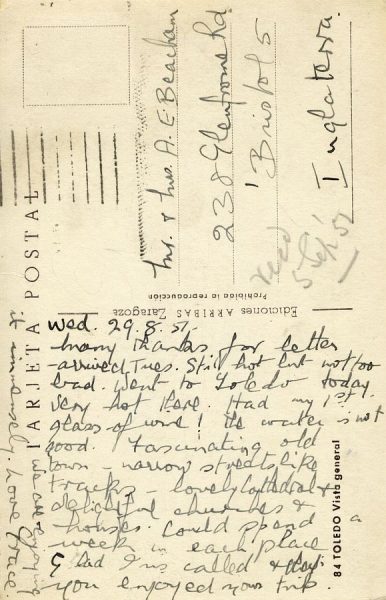 TARJETA POSTAL
Mr. & Mrs. A. E. Beacham
238 Glenfrome Rd
Bristol 5
Inglaterra.
Recd
5 Sep 51
Ediciones ARRIBAS Zaragoza
Prohibida la reproducción
84 TOLEDO Vista general
Wed. 29.8.51.
Many thanks for letter
arrived Tues. Still hot but not too
bad. Went to Toledo today
very hot there. Had my 1st
glass of wine! the water is not
good. Fascinating old
town - narrow streets like
tracks - lovely Cathedral &
delightful churches &
houses. Could spend a
week in each place
Glad Iris called &
you enjoyed your trip.
We are enjoying
it immensely. Love Grace